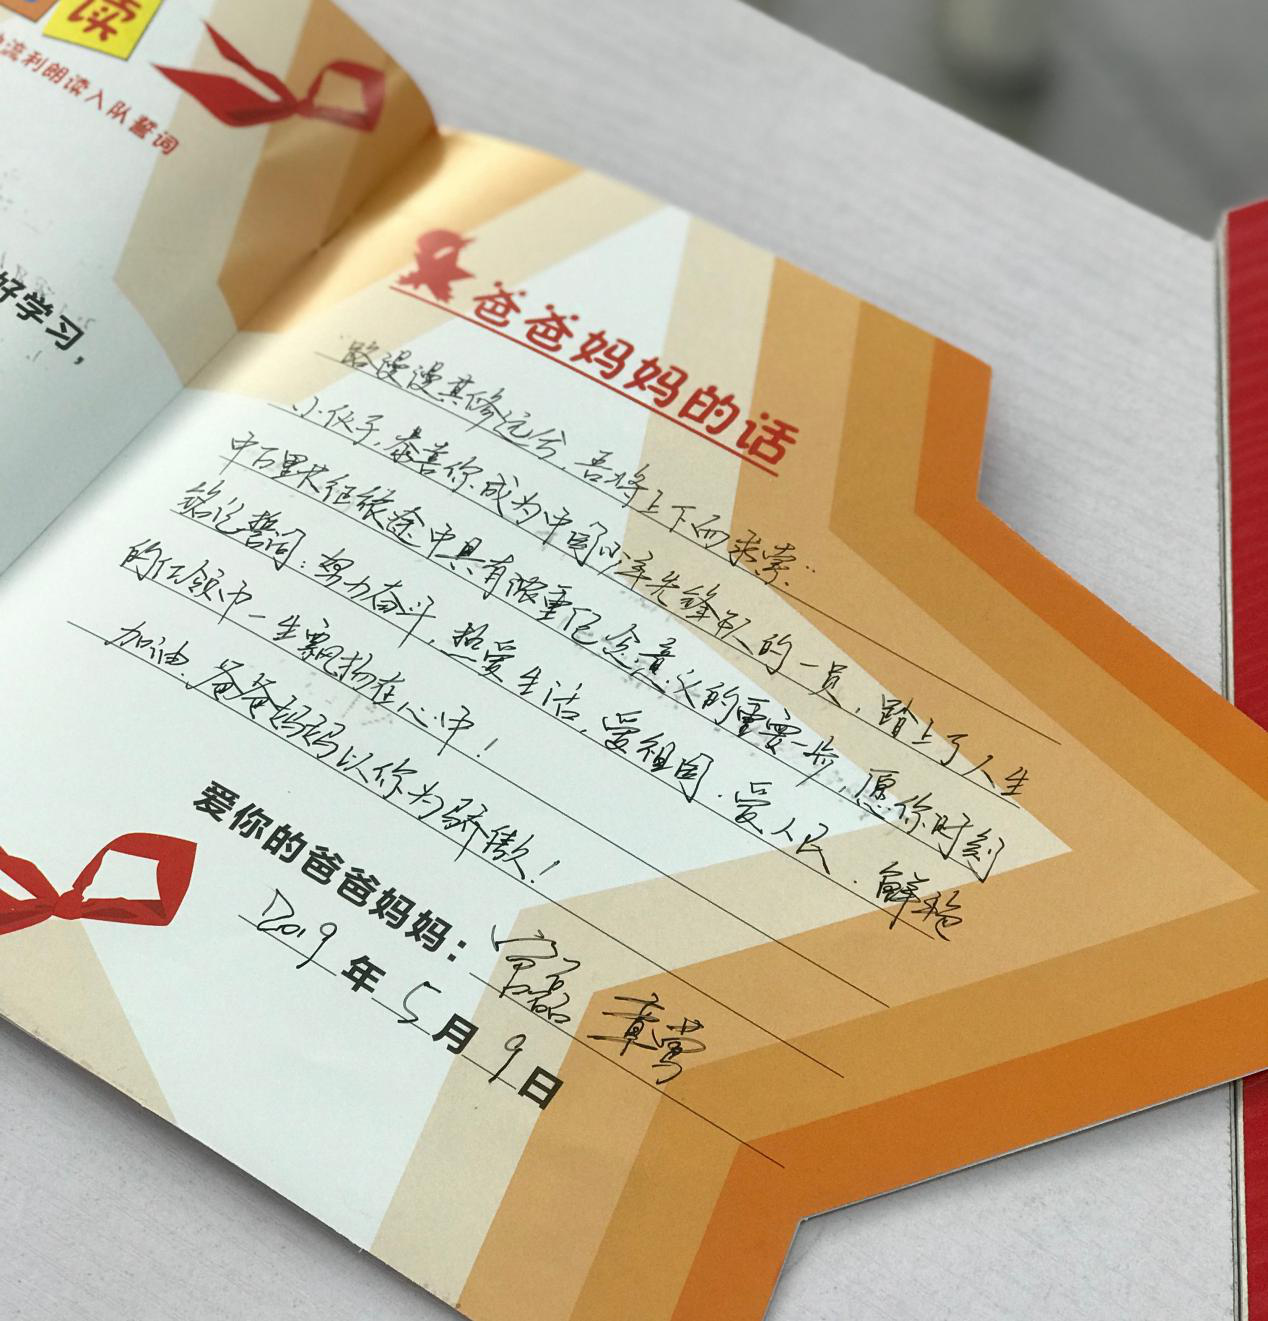 读
流利朗读入队誓词
好学习，
爸爸妈妈的话
路漫漫其修远兮，吾将上下而求索:
小伙子，恭喜你成为中国少年先锋队的一员，踏上了人生
中万里长征旅途中具有浓重纪念意义的重要一步，愿你时刻
铭记誓词：努力奋斗，热爱生活，爱祖国，爱人民，鲜艳
的红领巾一生飘扬在心中！
加油，爸爸妈妈以你为骄傲！
爱你的爸爸妈妈：宫磊 章莺
2019年5月9日